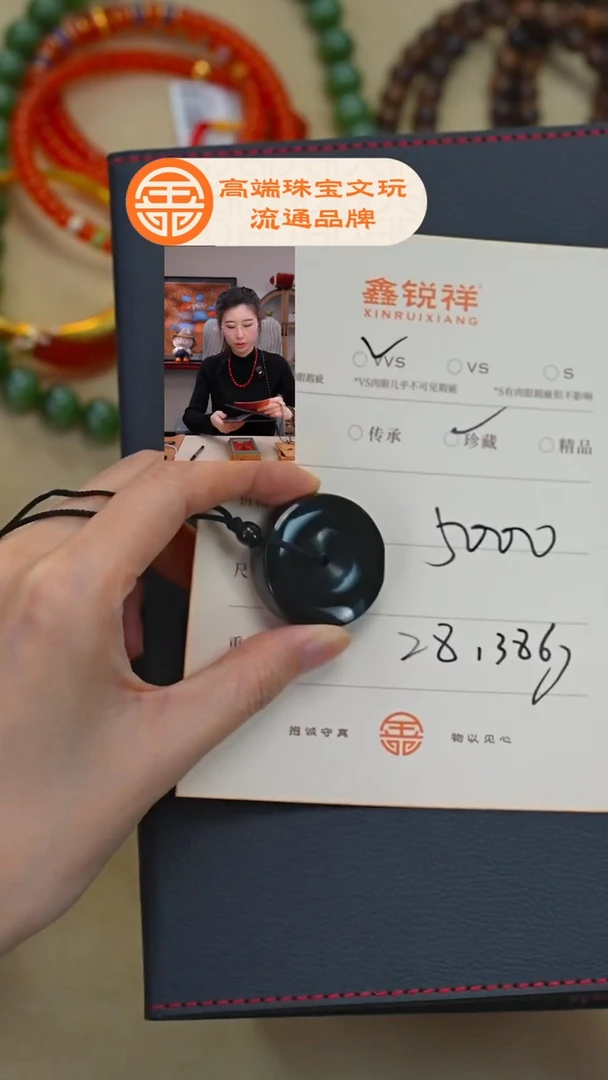 高端珠宝文玩
流通品牌
鑫锐祥
XINRUIXIANG
VVS
VS
S
*VS肉眼几乎不可见瑕疵
*S有肉眼瑕疵但不影响
传承
珍藏
精品
5000
尺
28.386g
抱诚守真
物以见心